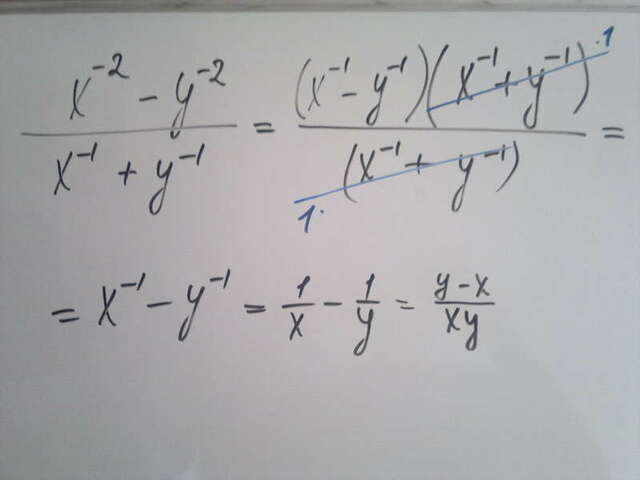 x⁻² - y⁻² / x⁻¹ + y⁻¹ = (x⁻¹ - y⁻¹)(x⁻¹ + y⁻¹) ·1 / (x⁻¹ + y⁻¹) 1· =
= x⁻¹ - y⁻¹ = 1/x - 1/y = y-x/xy